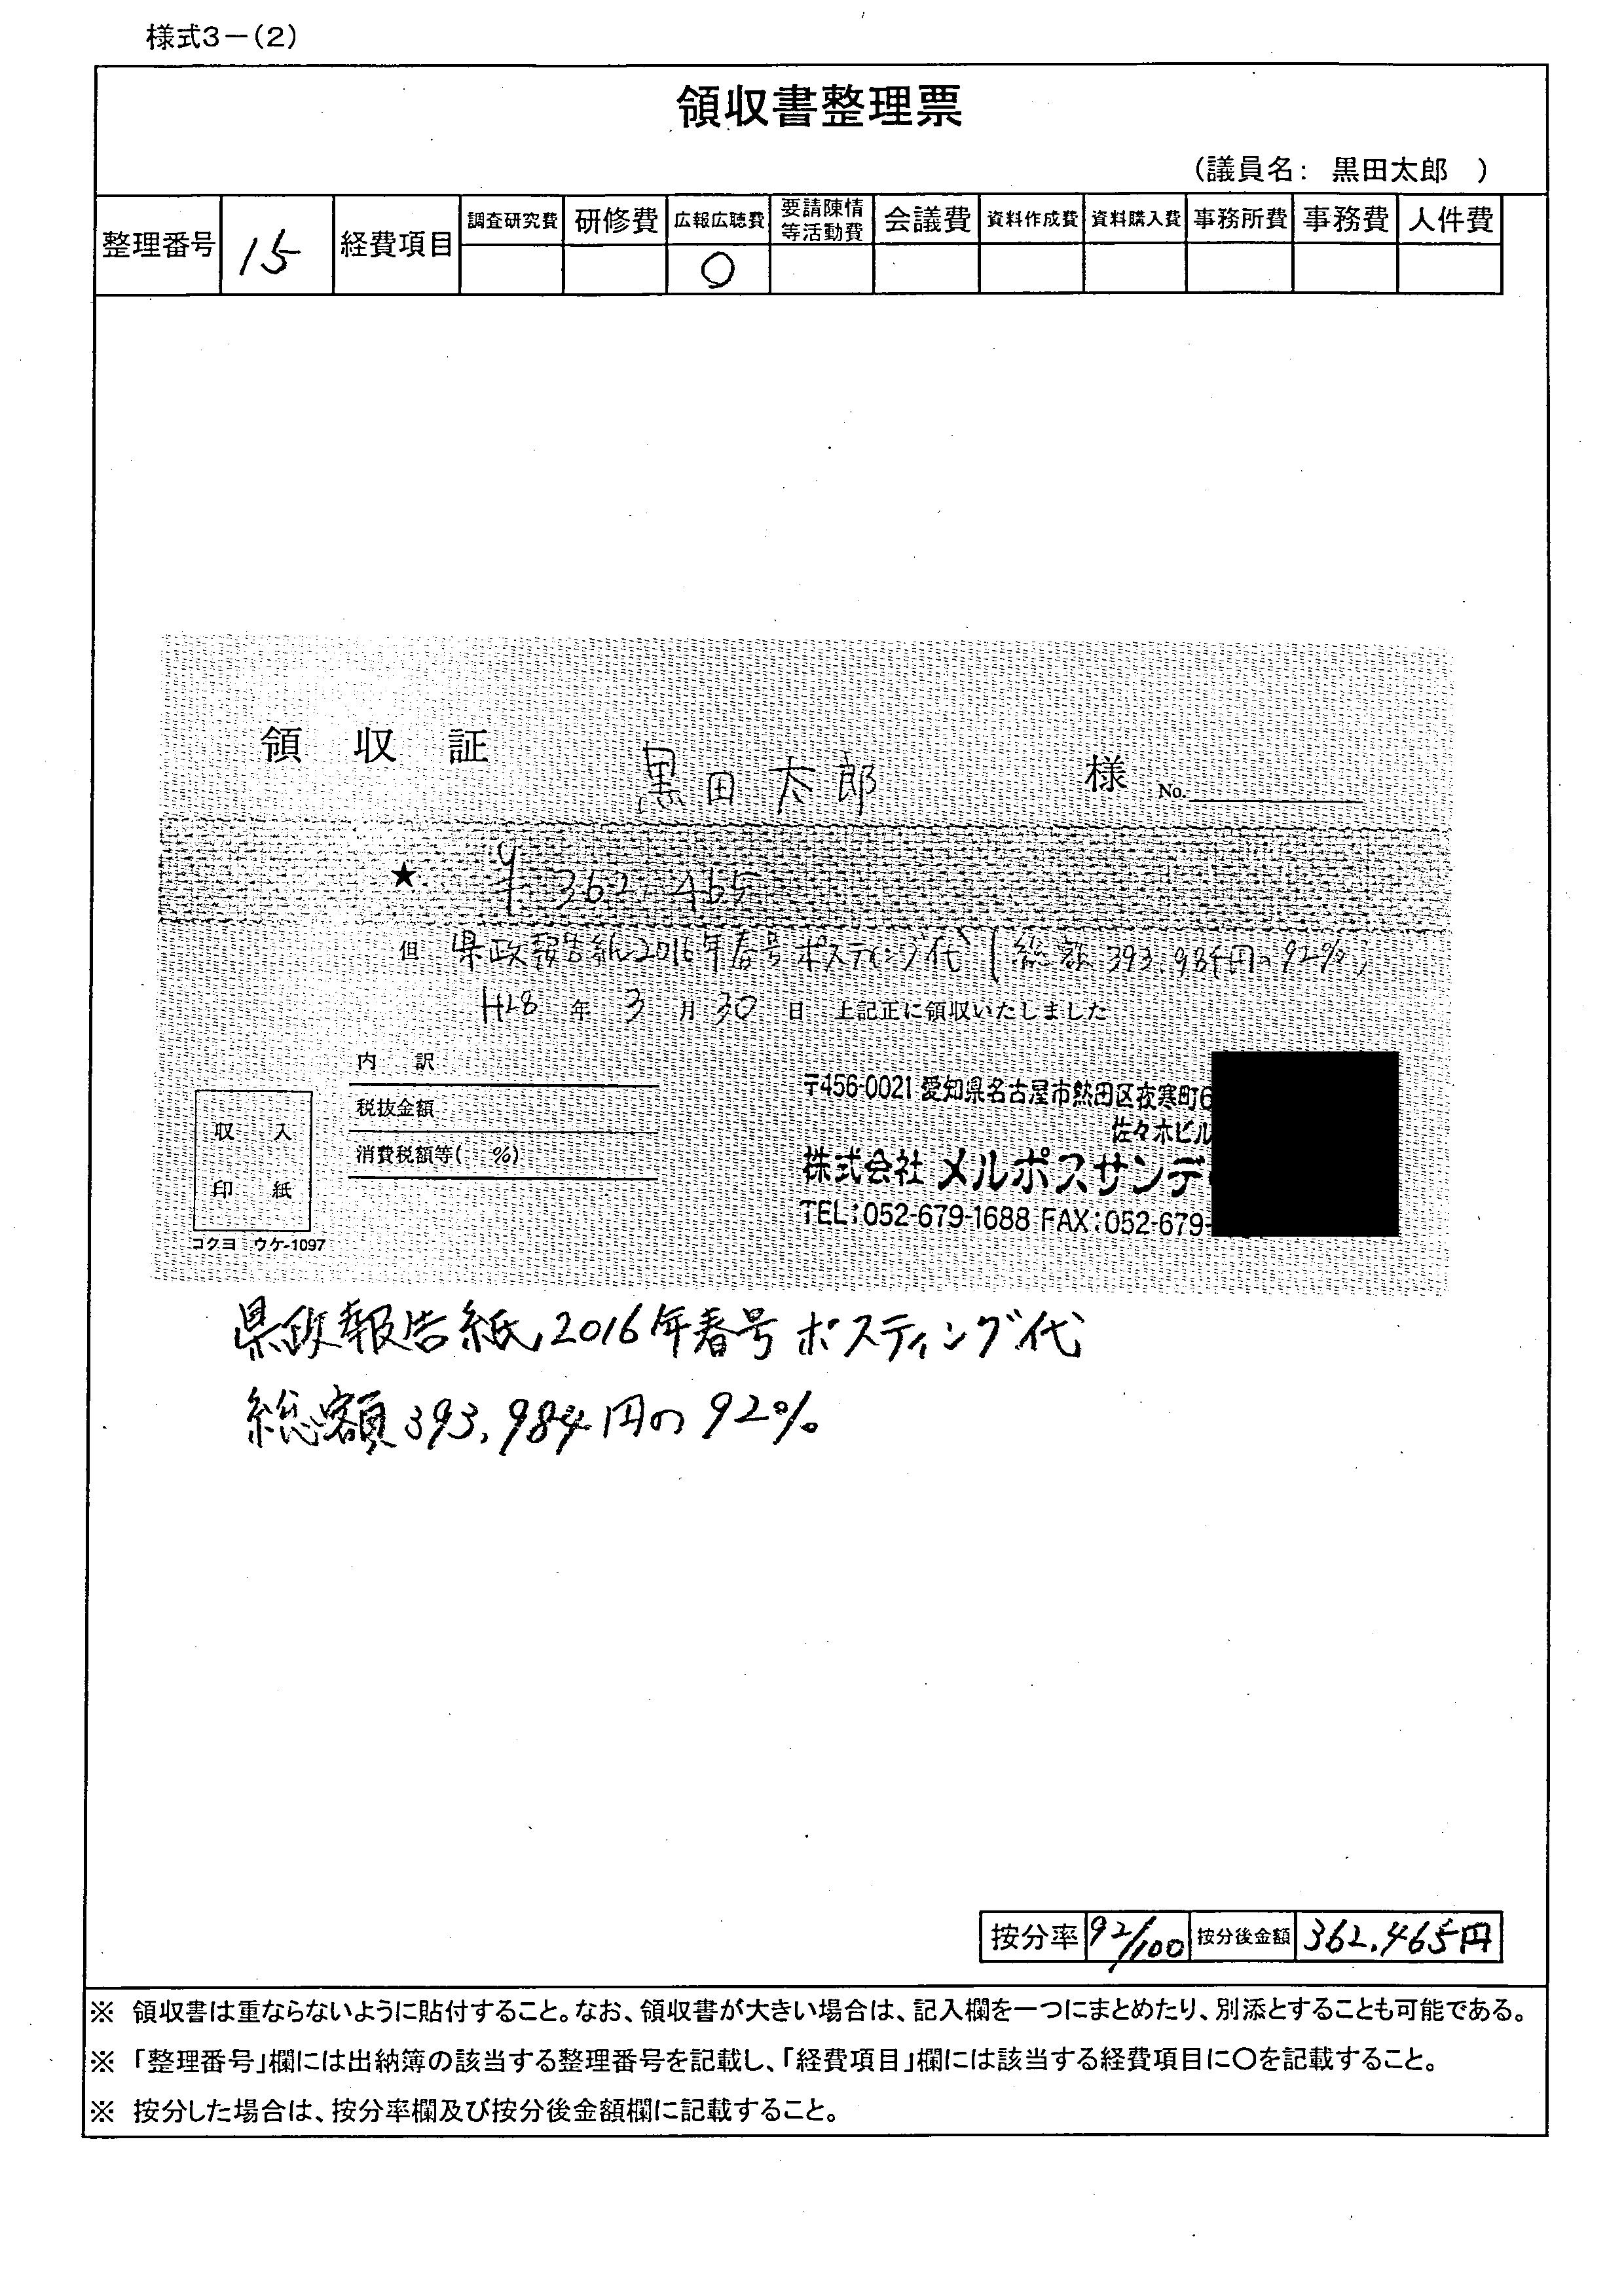 様式3-(2)
領収書整理票
(議員名: 黒田太郎 )
整理番号 15 経費項目 調査研究費 研修費 広報広聴費 要請陳情等活動費 会議費 資料作成費 資料購入費 事務所費 事務費 人件費
○
領収証 黒田太郎 様 No.
★ ¥362,465
但 県政報告紙2016年春号ポスティング代(総額393,984円の92%)
H28年3月30日 上記正に領収いたしました
内訳
税抜金額
消費税額等( %)
収入
印紙
コクヨ ウケ-1097
〒456-0021 愛知県名古屋市熱田区夜寒町6
佐々木ビル
株式会社 メルポスサンデ
TEL:052-679-1688 FAX:052-679-
県政報告紙2016年春号ポスティング代
総額393,984円の92%
按分率 92/100 按分後金額 362,465円
※ 領収書は重ならないように貼付すること。なお、領収書が大きい場合は、記入欄を一つにまとめたり、別添とすることも可能である。
※ 「整理番号」欄には出納簿の該当する整理番号を記載し、「経費項目」欄には該当する経費項目に○を記載すること。
※ 按分した場合は、按分率欄及び按分後金額欄に記載すること。